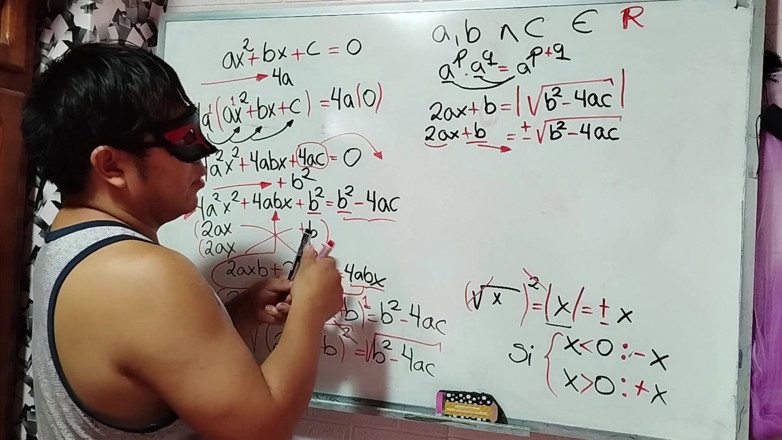 ax² + bx + c = 0
4a
4a¹(ax² + bx + c) = 4a(0)
4a²x² + 4abx + 4ac = 0
+ b²
4a²x² + 4abx + b² = b² - 4ac
(2ax + b)
(2ax
2axb + 2 = 4abx
b)¹ = b² - 4ac
√( b)² = √b² - 4ac
a, b ∧ c ∈ R
aᵖ · a^q = a^(p+q)
2ax + b = |√b² - 4ac|
2ax + b = ± √b² - 4ac
(√x)² = |x| = ± x
Si { x < 0 : - x
x > 0 : + x